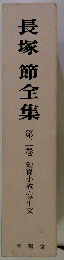 長塚節全集
第二巻 短篇小説・写生文
春陽堂